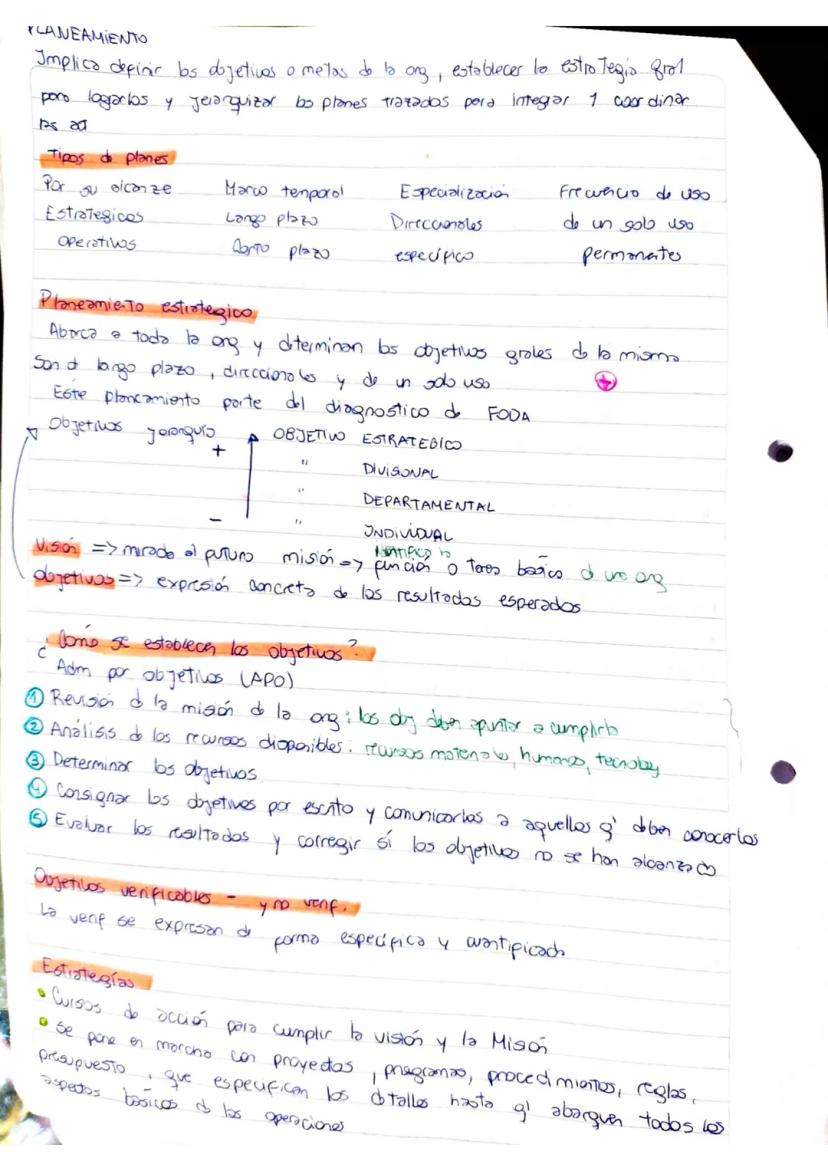 PLANEAMIENTO
Implica definir los objetivos o metas de la org, establecer la estrategia gral
para lograrlos y jerarquizar los planes trazados para integrar 1 coordinar
las act
Tipos de planes
Por su alcanze Marco temporal Especialización Frecuencia de uso
Estrategicos Largo plazo Direccionales de un solo uso
Operativos Corto plazo específico permanentes
Planeamiento estrategico
Abarca a toda la org y determinan los objetivos grales de la misma
Son d largo plazo, direccionales y de un solo uso
Este planeamiento parte del diagnostico de FODA
Objetivos jerarquía + OBJETIVO ESTRATEGICO
" DIVISONAL
" DEPARTAMENTAL
- " INDIVIDUAL
Visión => mirada al futuro misión => identifica la función o tarea basica d una org
objetivos => expresión concreta de los resultados esperados
¿Como se establecen los objetivos?
Adm por objetivos (APO)
1 Revisión d la misión de la org: los obj deben apuntar a cumplirla
2 Análisis de los recursos disponibles: recursos materiales, humanos, tecnolog
3 Determinar los objetivos
4 Consignar los objetivos por escrito y comunicarlos a aquellos q' deben conocerlos
5 Evaluar los resultados y corregir si los objetivos no se han alcanzado
Objetivos verificables - y no verif.
La verif se expresan de forma específica y cuantificada
Estrategías
• Cursos de acción para cumplir la visión y la Misión
• Se pone en marcha con proyectos, programas, procedimientos, reglas,
presupuesto, que especifican los detalles hasta q' abarquen todos los
aspectos basicos d las operaciones